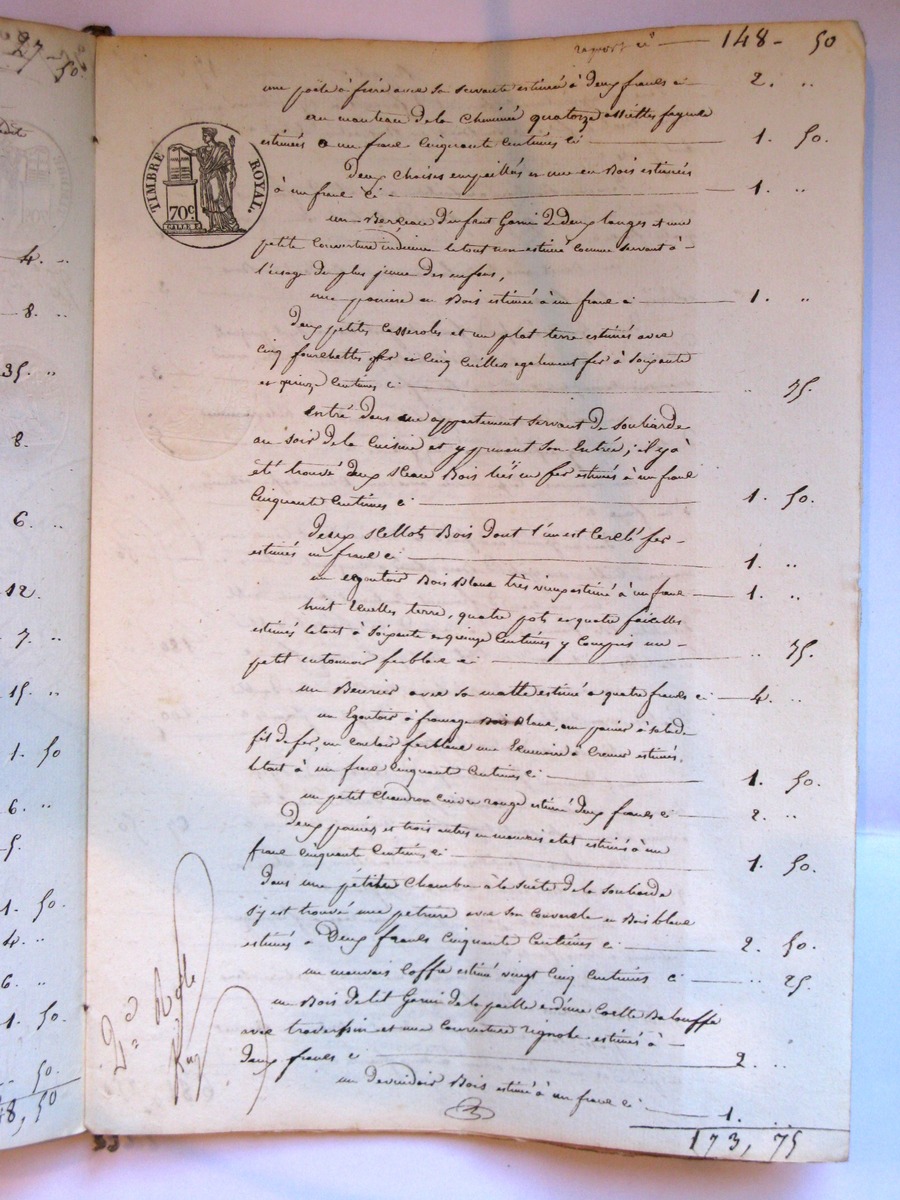 27 - 50.
4. ..
8. ..
35. ..
8.
6. ..
12.
7. ..
15. ..
1. 50
6. ..
5.
1. 50.
4. ..
6. ..
1. 50.
50.
48, 50
report ci 148 - 50
une poële à frire avec sa servante estimée à deux francs ci 2. ..
au manteau de la cheminée quatorze assiettes fayence
estimées à un franc cinquante centimes ci 1. 50.
TIMBRE ROYAL.
70c
deux chaises empaillés et une en Bois estimées
à un franc ci 1. ..
un Berceau d'enfant Garni de deux langes & une
petite couverture indienne le tout non estimé comme servant à
l'usage du plus jeune des enfans,
une paniere en Bois estimée à un franc ci 1. ..
deux petites casseroles et un plat terre estimés avec
cinq fourchettes fer et cinq cuilles egalement fer à soixante
et quinze centimes ci 75.
entré dans une appartement servant de souliarde
au soir de la cuisine et y prenant son entrée; il y à
été trouvé deux sceau Bois liés en fer estimés à un franc
cinquante centimes ci 1. 50.
deux sellots Bois dont l'un est cerclé fer
estimés un franc ci 1. ..
un egoutoir Bois Blanc très vieux estimé à un franc 1. ..
huit ecuelles terre, quatre pots et quatre faicelles
estimés le tout à soixante et quinze centimes y compris un
petit entonnoir ferblanc ci .. 75.
un Beurrier avec sa matte estimé à quatre francs ci 4. ..
un Egoutoir à fromage Bois Blanc, un panier à salade
fil de fer, un couloir ferblanc une Ecumoire à cremer estimés,
le tout à un franc cinquante centimes ci 1. 50.
un petit chaudron cuivre rouge estimé deux francs ci 2. ..
deux paniés et trois autres en mauvais etat estimés à un
franc cinquante centimes ci 1. 50.
dans une petite chambre à la suite de la souliarde
s'y est trouvé une petriere avec son couvercle en Bois blanc
estimés à deux francs cinquante centimes ci 2. 50.
un mauvais coffre estimé vingt cinq centimes ci .. 25
un Bois de lit Garni de la paille & d'une coette Balouffe
avec traversin et une couverture estimés à
deux francs ci 2. ..
un devindoir Bois estimé à un franc ci 1. ..
173, 75
2d Role